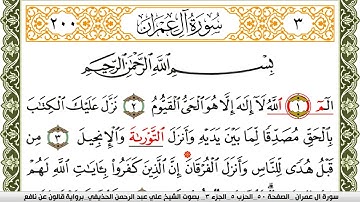 ٢٠٠ سُورَةُ آلِ عِمْرَانَ ٣
بِسْمِ اللَّهِ الرَّحْمَٰنِ الرَّحِيمِ
الٓمٓ ١ اللَّهُ لَا إِلَٰهَ إِلَّا هُوَ الْحَيُّ الْقَيُّومُ ٢ نَزَّلَ عَلَيْكَ الْكِتَابَ
بِالْحَقِّ مُصَدِّقًا لِمَا بَيْنَ يَدَيْهِ وَأَنزَلَ التَّوْرَىٰةَ وَالْإِنجِيلَ ٣ مِن
قَبْلُ هُدًى لِّلنَّاسِ وَأَنزَلَ الْفُرْقَانَ إِنَّ الَّذِينَ كَفَرُوا بِـَٔايَاتِ اللَّهِ لَهُمْ
سورة ال عمران . الصفحة ٥٠ . الحزب ٥ . الجزء ٣ . بصوت الشيخ علي عبد الرحمن الحذيفي . برواية قالون عن نافع